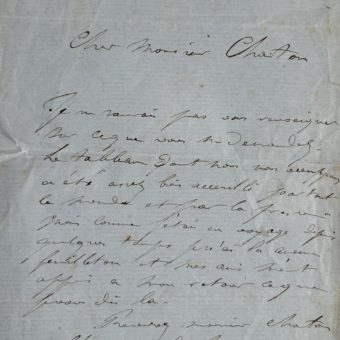 Cher Monsieur Chaton
Je ne saurais pas vous renseigner
sur ce que vous me demandez.
Le tableau dont nous nous
a été assez bien accueilli par tout
le monde et par la presse
mais comme j'étais en voyage depuis
quelque temps je n'ai lu aucun
feuilleton et mes amis m'ont
appris à mon retour ce que
vous dis là.
Recevez monsieur Chaton